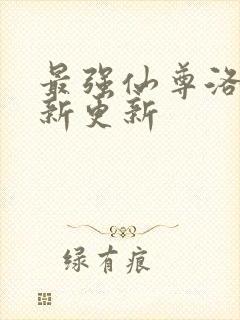 最强仙尊洛
新更新
绿有痕